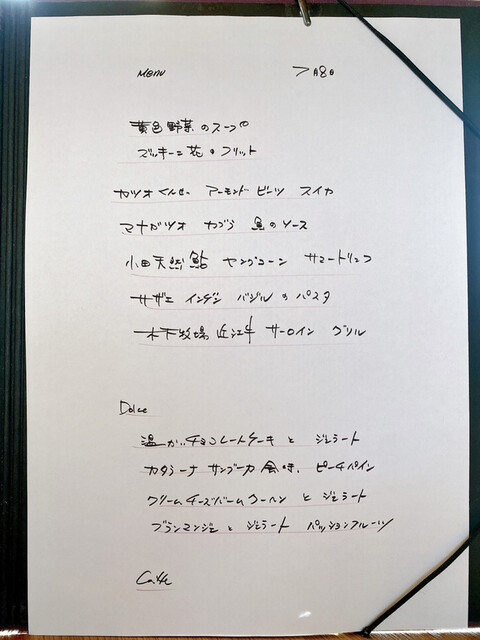 Menu 7月8日
黄色野菜のスープ
ズッキーニ花のフリット
カツオくんせい アーモンド ビーツ スイカ
マナガツオ カブラ 魚のソース
小田天然鮎 ヤングコーン サマートリュフ
サザエ インゲン バジルのパスタ
木下牧場近江牛 サーロイン グリル
Dolce
温かいチョコレートケーキとジェラート
カタラーナ サンブーカ風味、ピーチパイン
クリームチーズバームクーヘンとジェラート
ブランマンジェとジェラート パッションフルーツ
Caffe